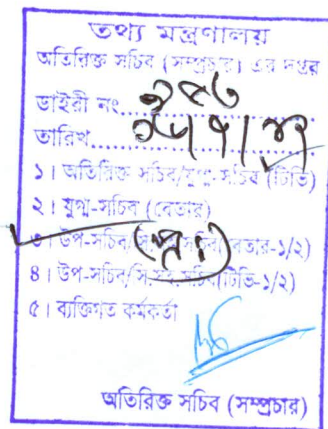 তথ্য মন্ত্রণালয়
অতিরিক্ত সচিব (সম্প্রচার) এর দপ্তর
ডাইরী নং
তারিখ
১। অতিরিক্ত সচিব/যুগ্ম-সচিব (টিভি)
২। যুগ্ম-সচিব (বেতার)
৩। উপ-সচিব/সিঃসহঃসচিব(বেতার-১/২)
৪। উপ-সচিব/সি.সহ.সচিব(টিভি-১/২)
৫। ব্যক্তিগত কর্মকর্তা
অতিরিক্ত সচিব (সম্প্রচার)